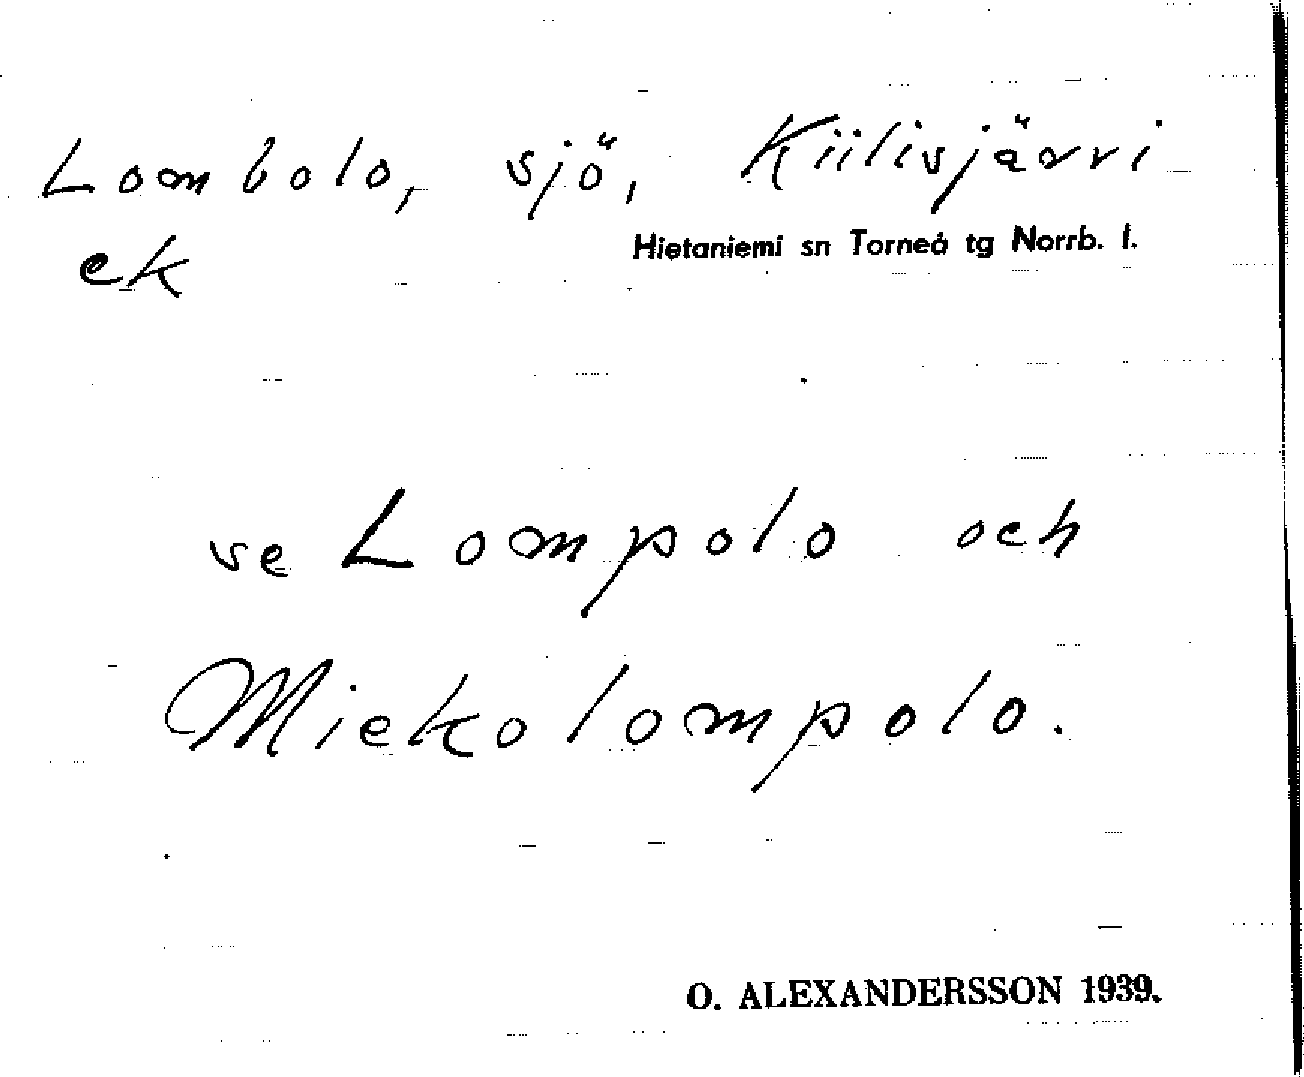 Lombolo, sjö, Kiilisjärvi
ek Hietaniemi sn Torneå tg Norrb. l.
se Lompolo och
Miekolompolo.
O. ALEXANDERSSON 1939.